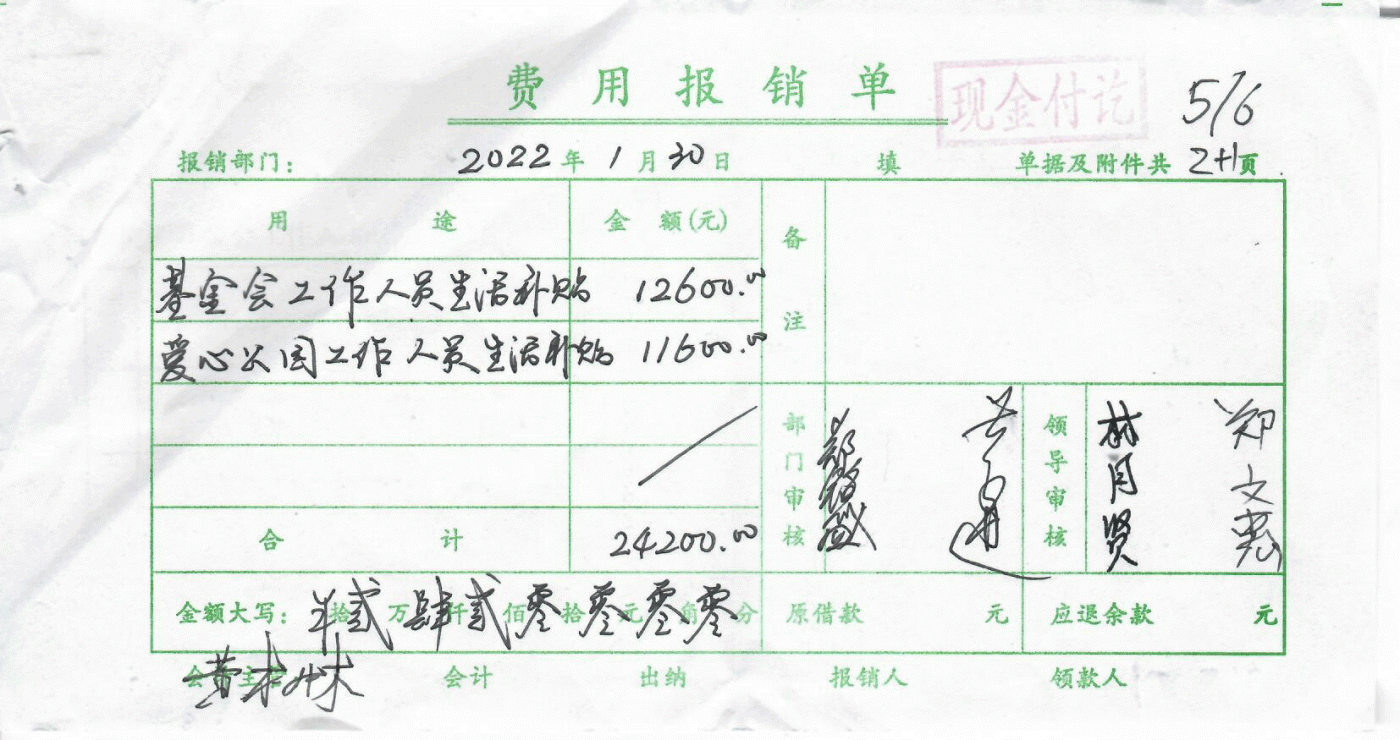 费用报销单
现金付讫
5/6
报销部门： 2022年1月30日 填 单据及附件共 2+1页
用途 金额(元) 备注
基金会工作人员生活补贴 12600.00
爱心公园工作人员生活补贴 11600.00
部门审核 领导审核 林月贤 郑文惠
合计 24200.00
金额大写： 拾贰万肆仟贰佰零拾零元零角零分 原借款 元 应退余款 元
会计主管 会计 出纳 报销人 领款人